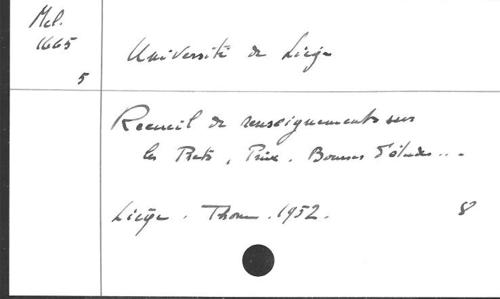 Mél.
1665
5
Université de Liège
Recueil de renseignements sur
les Prêts, Prix, Bourses d'études...
Liège. Thone. 1952. 8